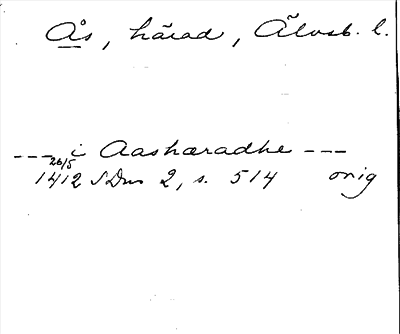 Ås, härad, Älvsb. l.
--- i Aashæradhe ---
26/5
1412 SDns 2, s. 514 orig